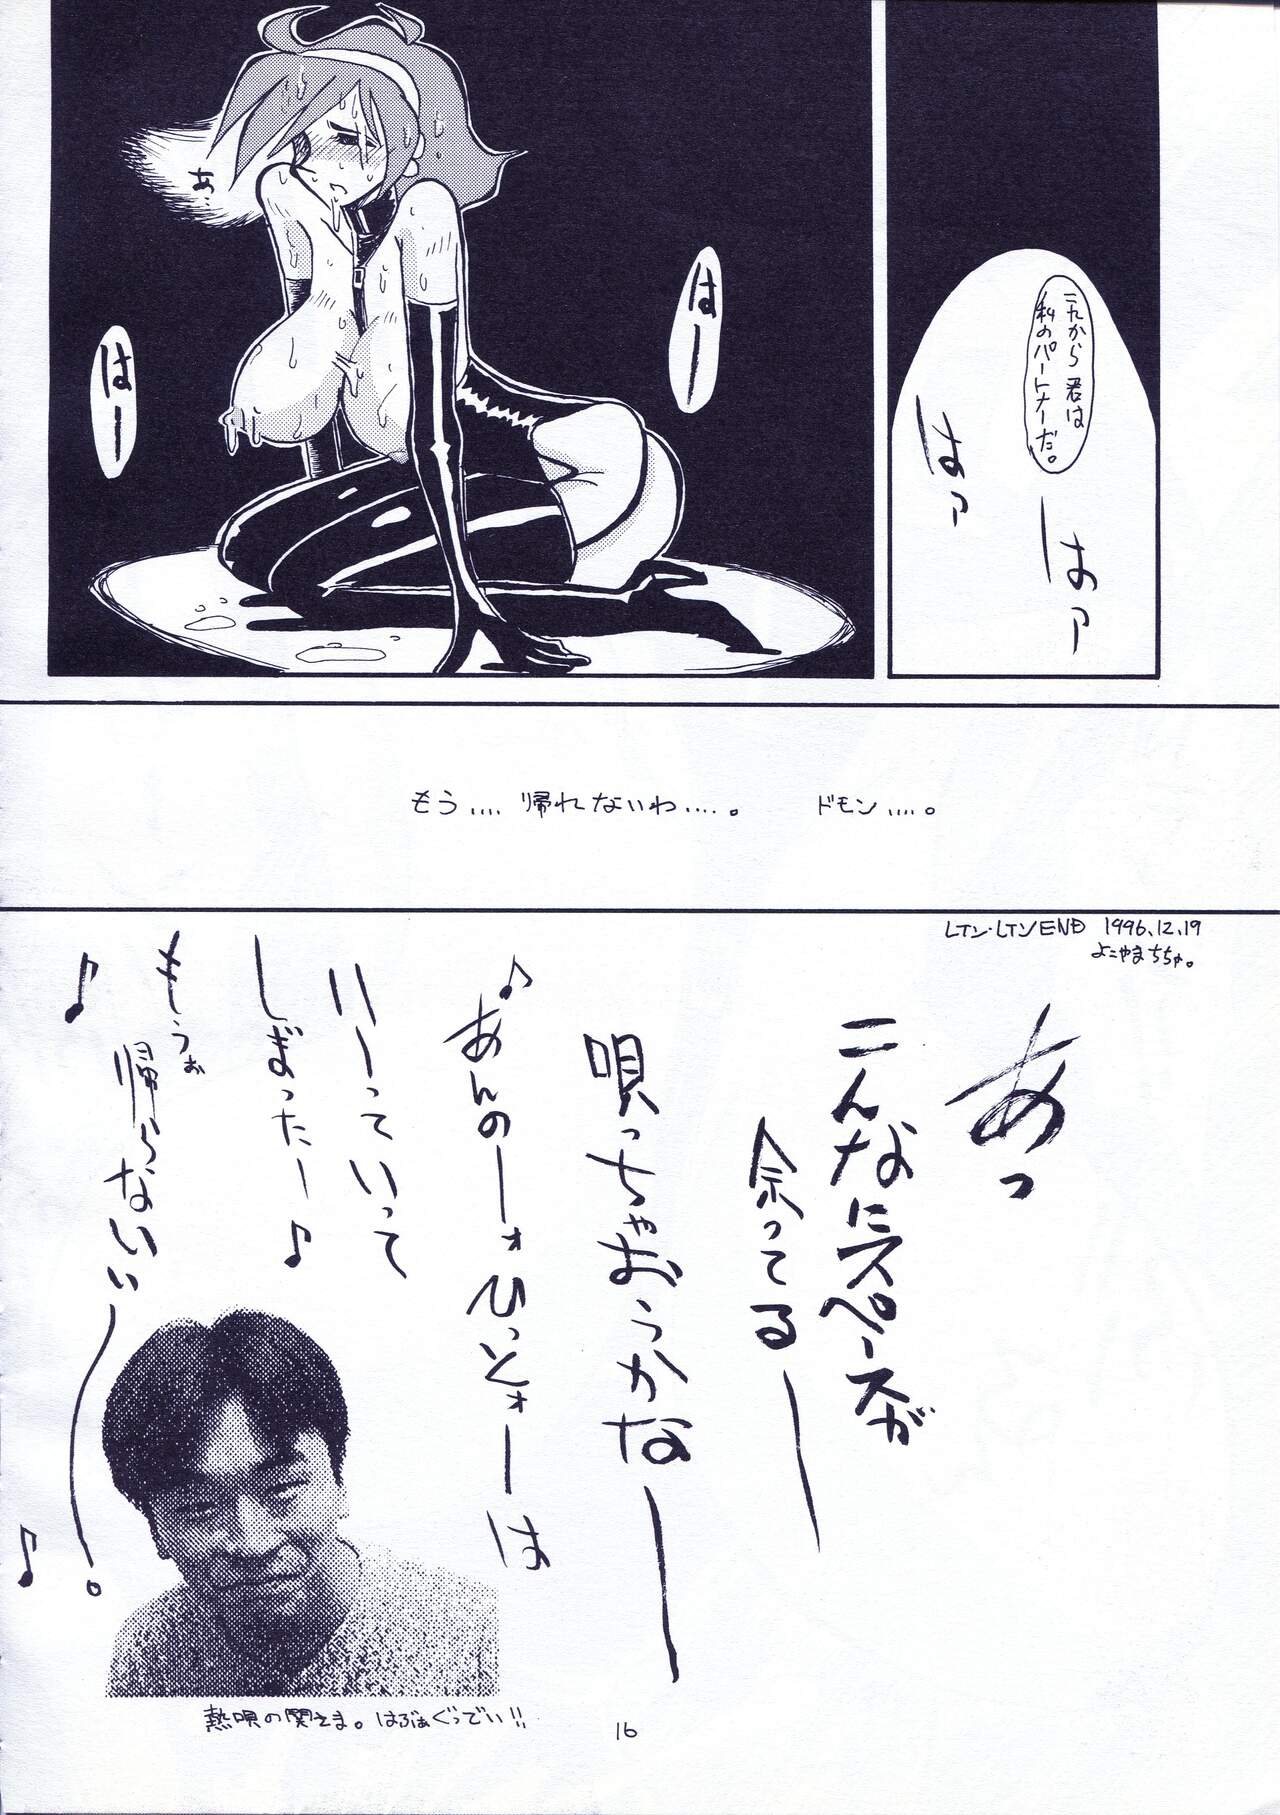 これから君は
私のパートナーだ。
はァ
はァ
はー
あ..
はー
もう.... 帰れないわ....。 ドモン....。
レイン・レイン END 1996.12.19
よこやまちちゃ。
あっ
こんなにスペースが
余ってるー
唄っちゃおうかなー
♪あんのーォひっとォーは
いーっていって
しぎったー♪
もうぉ
帰らないいぃー。
♪
♪
熱唄の関さま。はぶぁぐっでい!!
16